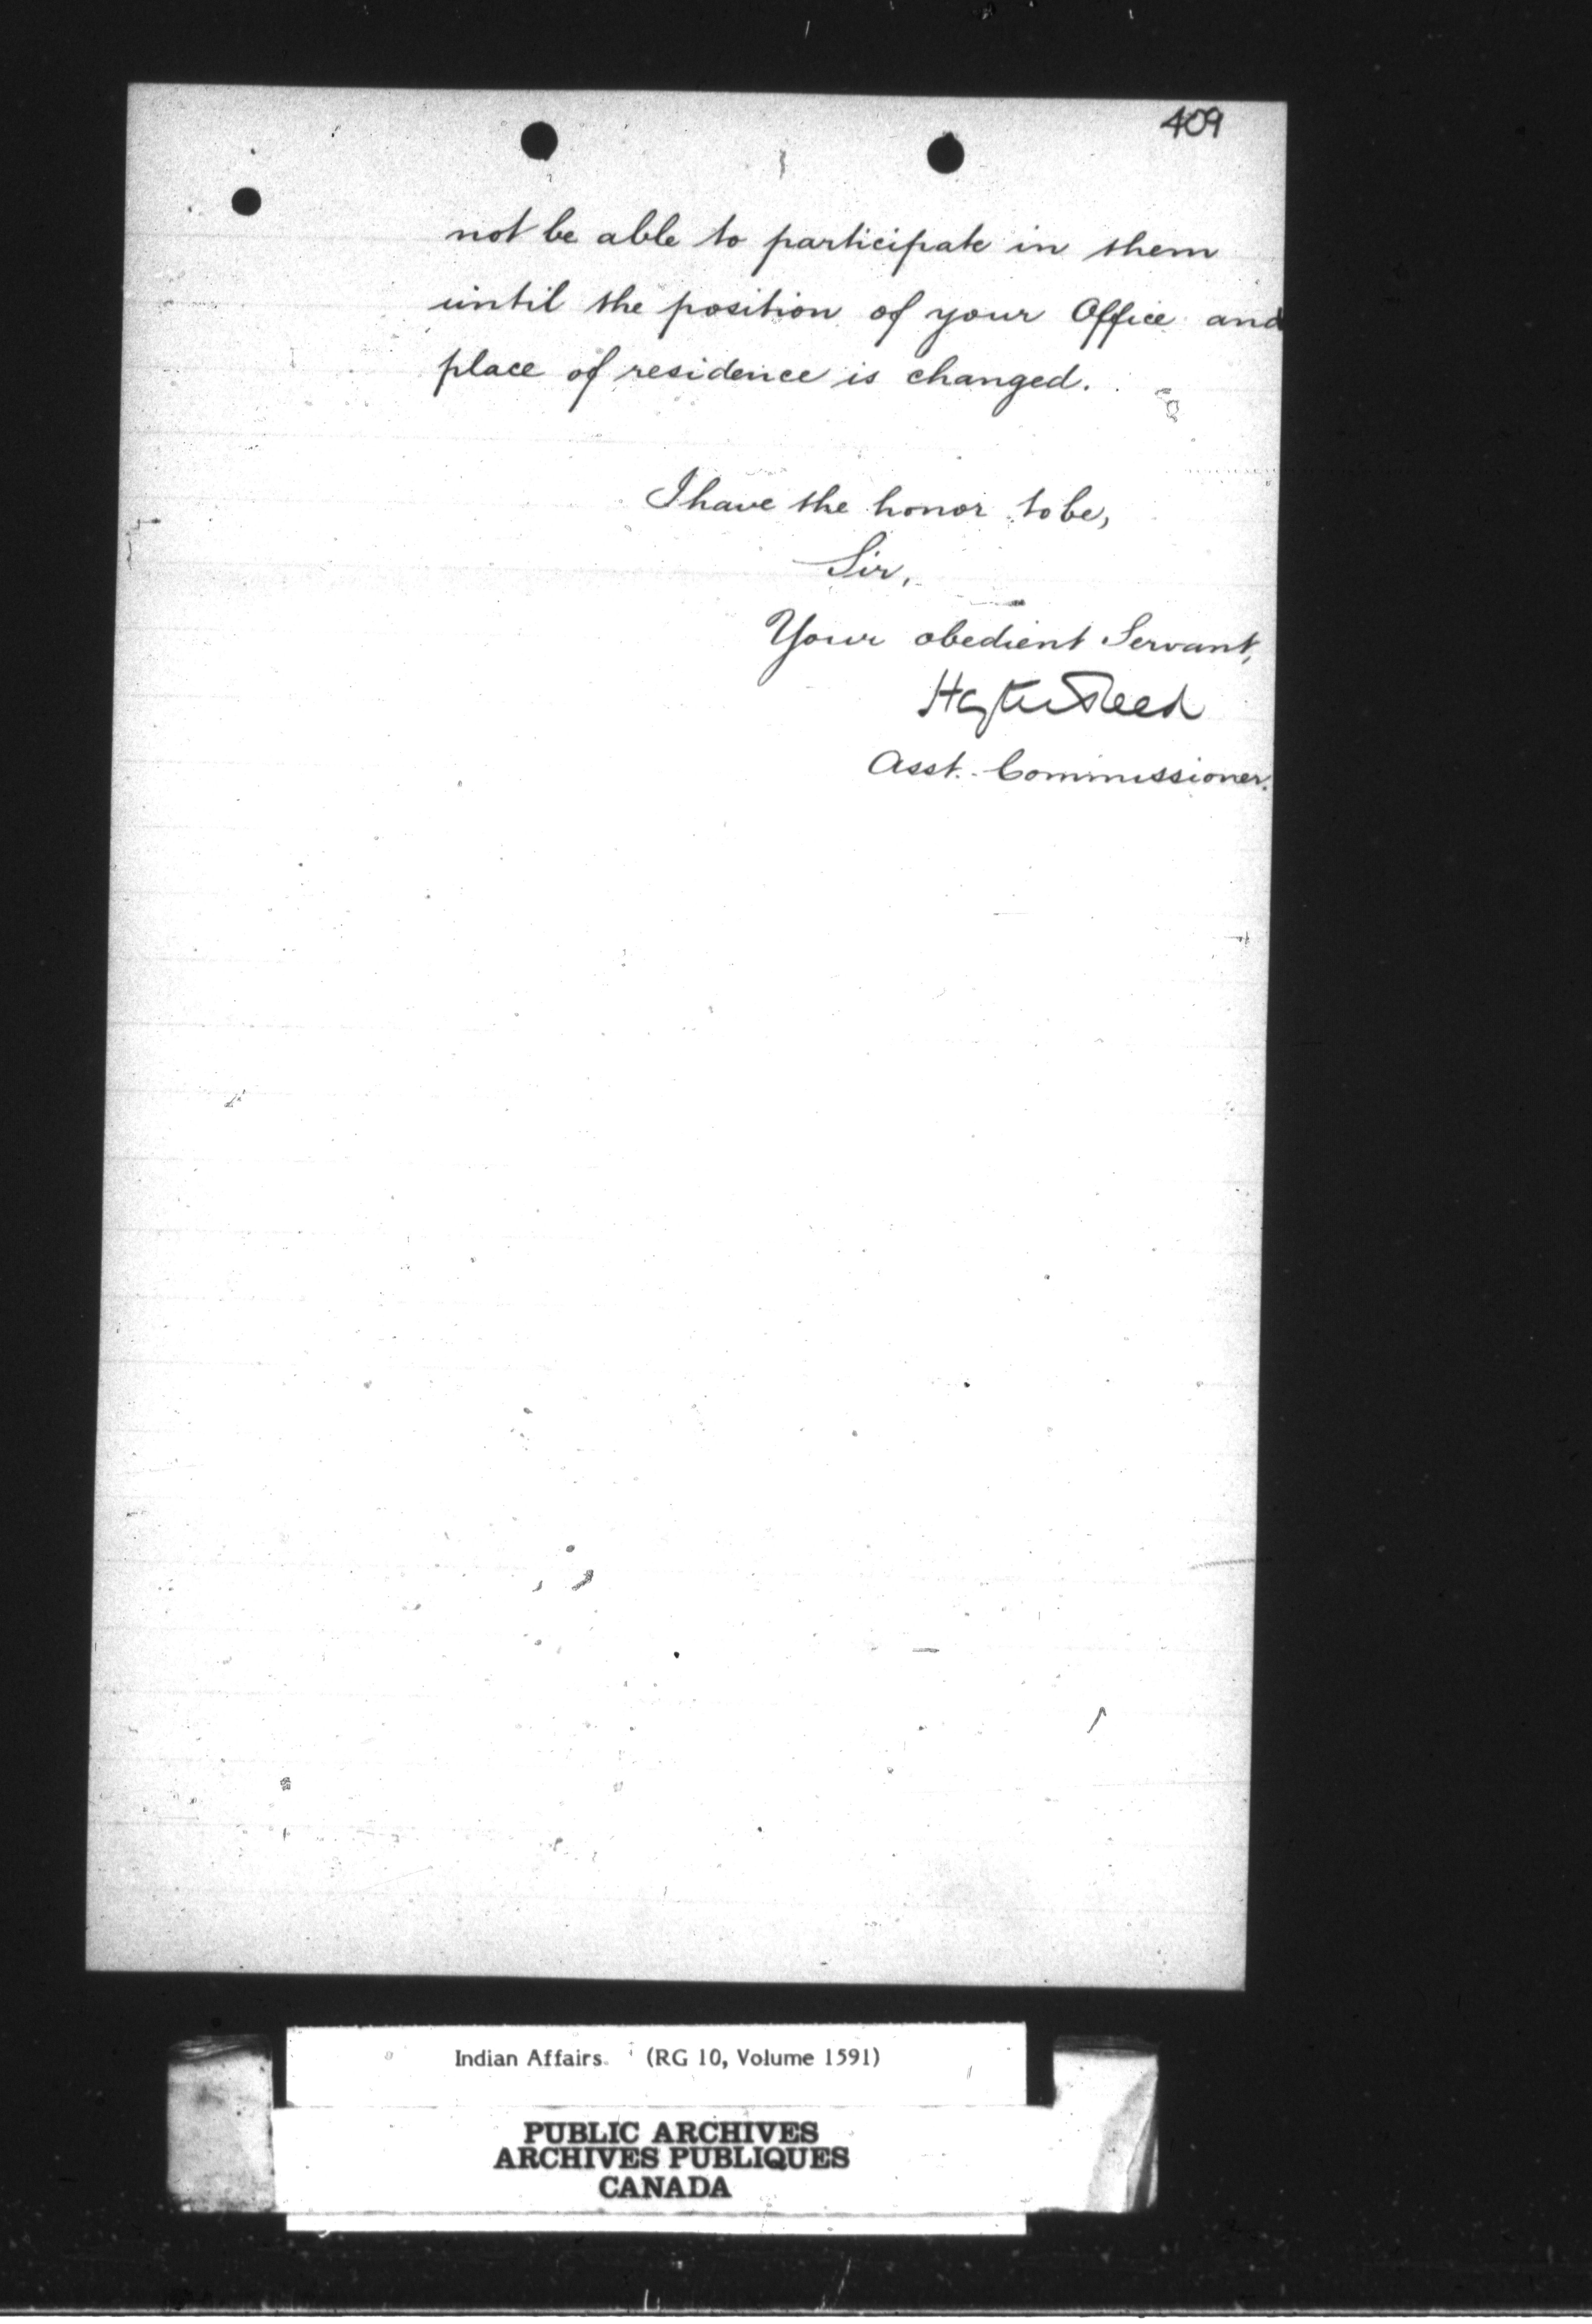 409
not be able to participate in them
until the position of your Office and
place of residence is changed.
I have the honor to be,
Sir,
Your obedient Servant,
Hayter Reed
Asst. Commissioner.
Indian Affairs. (RG 10, Volume 1591)
PUBLIC ARCHIVES
ARCHIVES PUBLIQUES
CANADA